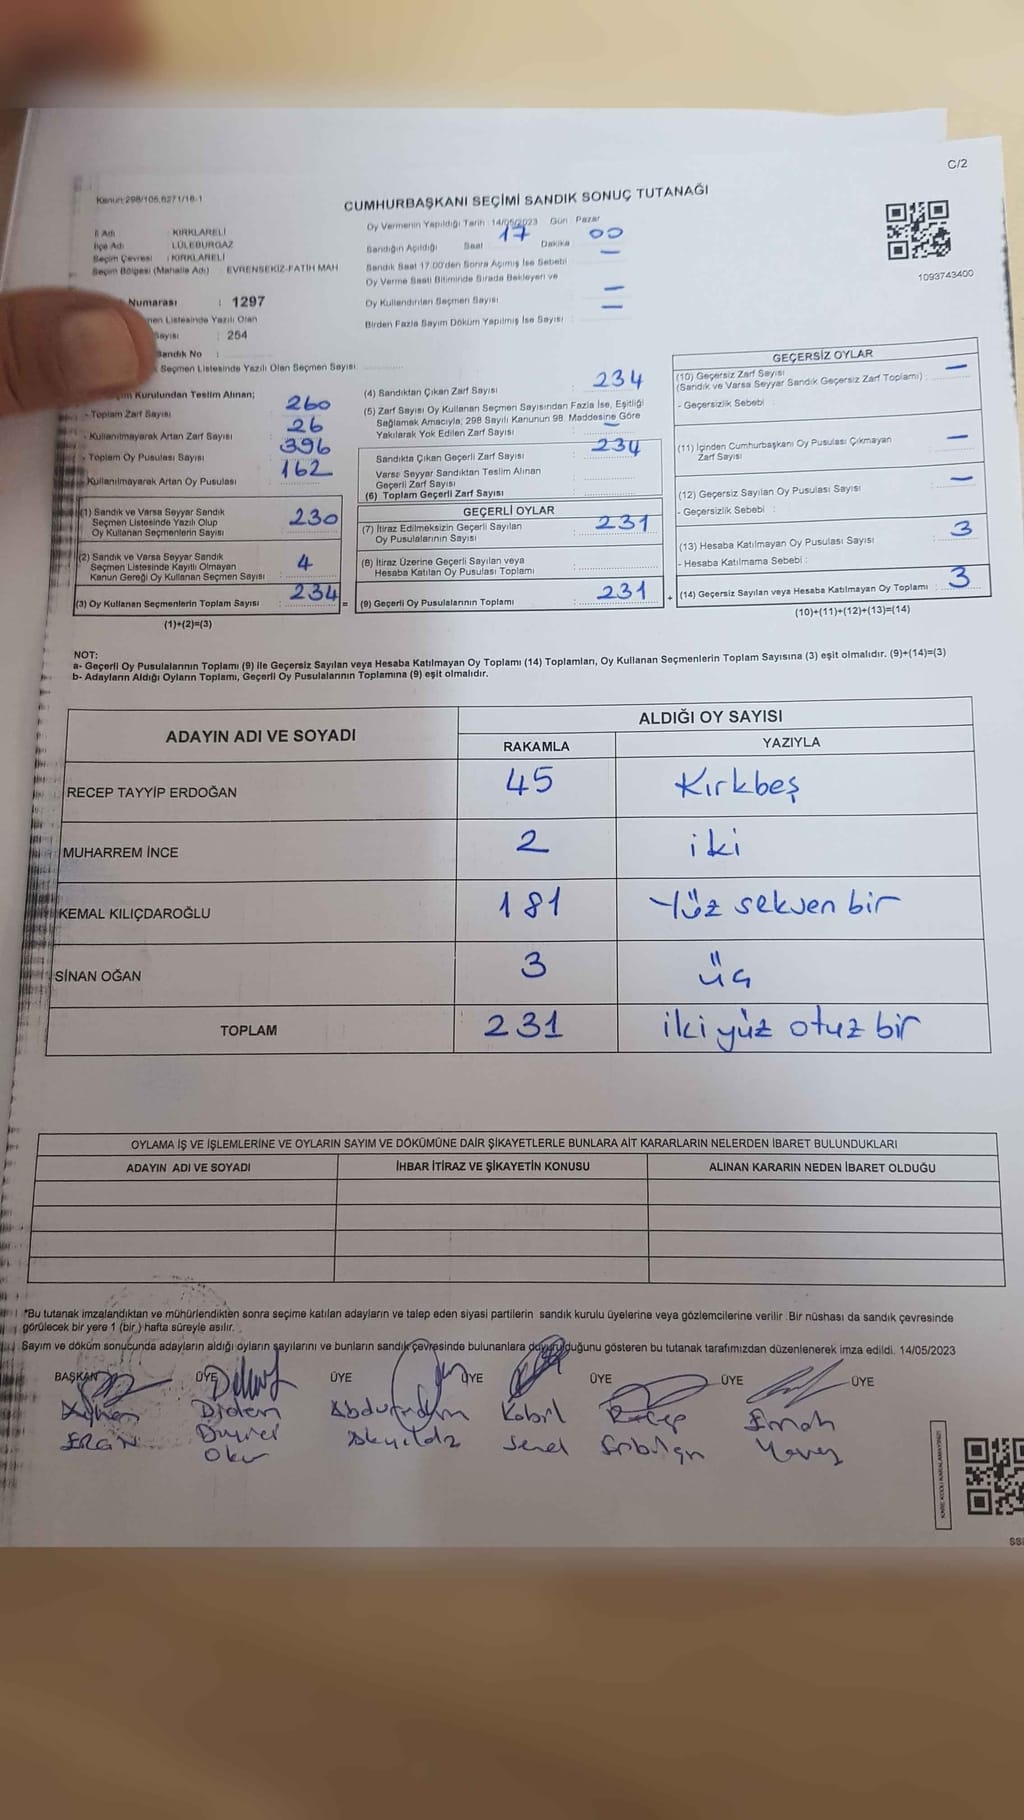 C/2
Kanun:298/105,6271/16-1
CUMHURBAŞKANI SEÇİMİ SANDIK SONUÇ TUTANAĞI
1093743400
İl Adı : KIRKLARELİ
İlçe Adı : LÜLEBURGAZ
Seçim Çevresi : KIRKLARELİ
Seçim Bölgesi (Mahalle Adı) : EVRENSEKİZ-FATİH MAH
Numarası : 1297
Listesinde Yazılı Olan
Sayısı : 254
Sandık No :
Seçmen Listesinde Yazılı Olan Seçmen Sayısı
Oy Vermenin Yapıldığı Tarih : 14/05/2023 Gün : Pazar
Sandığın Açıldığı Saat 17 Dakika 00
Sandık Saat 17.00'den Sonra Açılmış İse Sebebi —
Oy Verme Saati Bitiminde Sırada Bekleyen ve
Oy Kullandırılan Seçmen Sayısı : —
Birden Fazla Sayım Döküm Yapılmış İse Sayısı : —
Kurulundan Teslim Alınan;
- Toplam Zarf Sayısı : 260
- Kullanılmayarak Artan Zarf Sayısı : 26
- Toplam Oy Pusulası Sayısı : 396
Kullanılmayarak Artan Oy Pusulası : 162
(1) Sandık ve Varsa Seyyar Sandık
Seçmen Listesinde Yazılı Olup
Oy Kullanan Seçmenlerin Sayısı : 230
(2) Sandık ve Varsa Seyyar Sandık
Seçmen Listesinde Kayıtlı Olmayan
Kanun Gereği Oy Kullanan Seçmen Sayısı : 4
(3) Oy Kullanan Seçmenlerin Toplam Sayısı : 234 =
(1)+(2)=(3)
(4) Sandıktan Çıkan Zarf Sayısı : 234
(5) Zarf Sayısı Oy Kullanan Seçmen Sayısından Fazla İse, Eşitliği
Sağlamak Amacıyla, 298 Sayılı Kanunun 98. Maddesine Göre
Yakılarak Yok Edilen Zarf Sayısı : —
Sandıkta Çıkan Geçerli Zarf Sayısı : 234
Varsa Seyyar Sandıktan Teslim Alınan
Geçerli Zarf Sayısı :
(6) Toplam Geçerli Zarf Sayısı :
GEÇERLİ OYLAR
(7) İtiraz Edilmeksizin Geçerli Sayılan
Oy Pusulalarının Sayısı : 231
(8) İtiraz Üzerine Geçerli Sayılan veya
Hesaba Katılan Oy Pusulası Toplamı :
(9) Geçerli Oy Pusulalarının Toplamı : 231 +
GEÇERSİZ OYLAR
(10) Geçersiz Zarf Sayısı
(Sandık ve Varsa Seyyar Sandık Geçersiz Zarf Toplamı) : —
- Geçersizlik Sebebi :
(11) İçinden Cumhurbaşkanı Oy Pusulası Çıkmayan
Zarf Sayısı : —
(12) Geçersiz Sayılan Oy Pusulası Sayısı : —
- Geçersizlik Sebebi :
(13) Hesaba Katılmayan Oy Pusulası Sayısı : 3
- Hesaba Katılmama Sebebi :
(14) Geçersiz Sayılan veya Hesaba Katılmayan Oy Toplamı : 3
(10)+(11)+(12)+(13)=(14)
NOT:
a- Geçerli Oy Pusulalarının Toplamı (9) ile Geçersiz Sayılan veya Hesaba Katılmayan Oy Toplamı (14) Toplamları, Oy Kullanan Seçmenlerin Toplam Sayısına (3) eşit olmalıdır. (9)+(14)=(3)
b- Adayların Aldığı Oyların Toplamı, Geçerli Oy Pusulalarının Toplamına (9) eşit olmalıdır.
ADAYIN ADI VE SOYADI ALDIĞI OY SAYISI
RAKAMLA YAZIYLA
RECEP TAYYİP ERDOĞAN 45 Kırkbeş
MUHARREM İNCE 2 iki
KEMAL KILIÇDAROĞLU 181 Yüz seksen bir
SİNAN OĞAN 3 üç
TOPLAM 231 iki yüz otuz bir
OYLAMA İŞ VE İŞLEMLERİNE VE OYLARIN SAYIM VE DÖKÜMÜNE DAİR ŞİKAYETLERLE BUNLARA AİT KARARLARIN NELERDEN İBARET BULUNDUKLARI
ADAYIN ADI VE SOYADI İHBAR İTİRAZ VE ŞİKAYETİN KONUSU ALINAN KARARIN NEDEN İBARET OLDUĞU
*Bu tutanak imzalandıktan ve mühürlendikten sonra seçime katılan adayların ve talep eden siyasi partilerin sandık kurulu üyelerine veya gözlemcilerine verilir. Bir nüshası da sandık çevresinde
görülecek bir yere 1 (bir ) hafta süreyle asılır.
Sayım ve döküm sonucunda adayların aldığı oyların sayılarını ve bunların sandık çevresinde bulunanlara duyurulduğunu gösteren bu tutanak tarafımızdan düzenlenerek imza edildi. 14/05/2023
BAŞKAN ÜYE ÜYE ÜYE ÜYE ÜYE ÜYE
Didem Recep
Senel